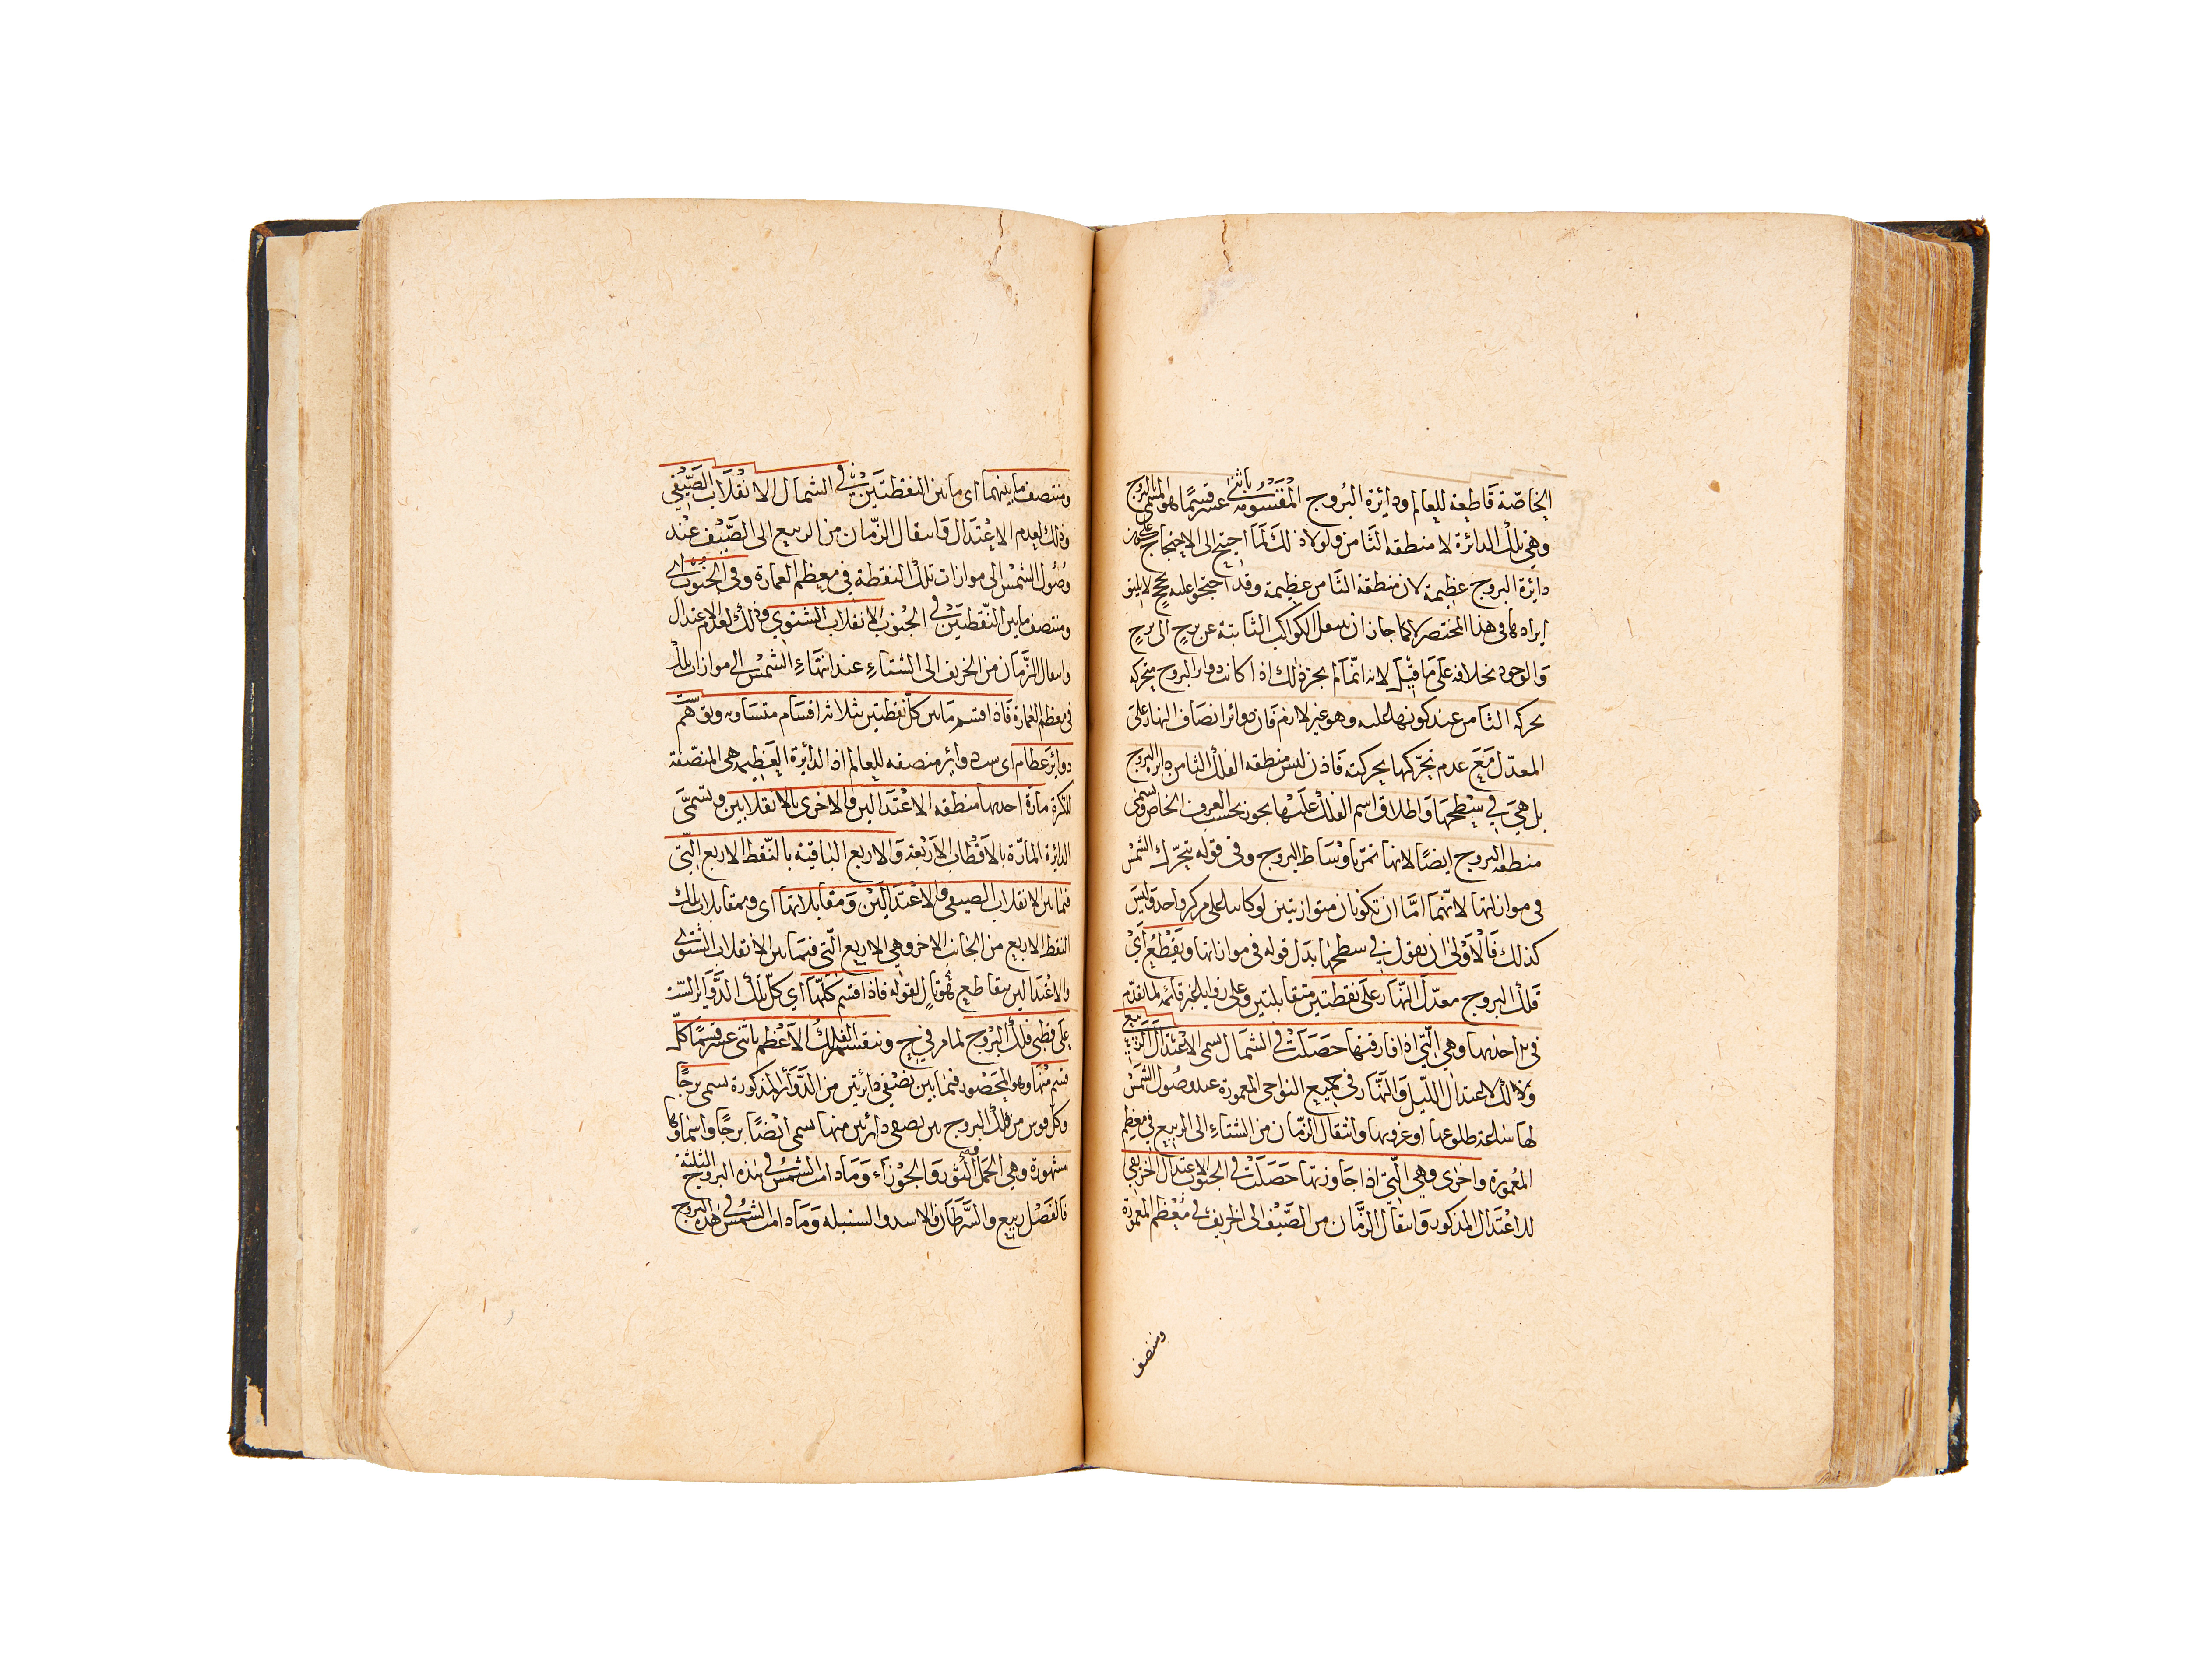 الخاصّة قاطعة للعالم ودائرة البُروج المقسومة باثنى عشر قسمًا هو المسمى بالبروج
وهي تلك الدائرة لا منطقة الثامن ولولا ذلك لما احتيج الى الاحتجاج على كون
دايرة البروج عظيمة لان منطقة الثامن عظيمة وقد احتجوا عليه بحجج لا يليق
ايرادها في هذا المختصر لا كما جاز ان ينتقل الكواكب الثابتة عن برج الى برج
والوجود بخلافه على ما قيل لانه انما لم يجز ذلك اذا كانت دواير البروج متحركة
بحركة الثامن عند كونها عليه وهو غير لازم فان دوائر انصاف النهار على
المعدّل مَعَ عدم تحرّكها بحركته فاذن ليس منطقة الفلك الثامن دايرة البروج
بل هِيَ في سطحها واطلاق اسم الفلك عليها يجوز بحسب العرف الخاص وتسمى
منطقة البروج ايضًا لانها تمرّ باوساط البروج وفي قوله يتحرّك الشمس
في موازاتها لانّهما امّا ان تكونان متوازيتين لو كانتا على مركز واحد وليس
كذلك فالأَوْلى ان يقول في سطحها بدل قوله في موازاتها ويَقْطَعُ أَيْ
فلك البروج معدّل النّهار على نقطتين متقابلتين وعلى زوايا غير قائمة لما تقدّم
في احدٰيهما وهي الّتي اذا فارقتها حَصَلَتْ في الشمال يسمى الاعتدال الربيعي
وذلك لاعتدال اللّيل والنّهار في جميع النواحى المعمورة عند وصُول الشّمس
لها ساعة طلوعها او غروبها وانتقال الزّمان من الشتاءِ الى الربيع في معظم
المعْمورة واخرٰى وهي الّتي اذا جاوزتها حَصَلَتْ في الجنوب الاعتدال الخريفي
للاعتدال المذكور وانتقال الزّمان من الصّيف الى الخريف في مُعْظم المعمورة
ومنتصف
ومنتصف ما بينهما اى ما بين النقطتَيْن في الشمال الانقلاب الصَّيْفي
وذلك لعدم الاعْتدَال وانتقال الزّمان من الربيع الى الصّيْف عند
وصُول الشمْس الى موازات تلك النقطة في معظم العمارة وفي الجنوب اى
ومنتصف ما بين النّقطتين في الجُنوب الانقلاب الشتوي وذلك لعدم الاعتدال
وانتقال الزَّمَان من الخريف الى الشتاءِ عند انتهاءِ الشمس الى موازات تلك
في معظم العمارة فاذا اقتسم ما بين كلّ نقطتين بثلاثة اقسام متساوية وتوهم ست
دوائر عظام اى ست دوائر منصفة للعالم اذ الدائرة العَظيمة هى المنصّفة
للكرة مارّة احديها منطقة الاعْتدالين والاخرى بالانقلابين وتسمّى
الدائرة المارّة بالاقطاب الاربعة والاربع الباقية بالنّقط الاربع الّتى
فيما بين الانقلاب الصيفى والاعْتدالَيْن وَمقابلاتها اى وبمقابلات تلك
النقط الاربع من الجانب الاخر وهي الاربع الّتى فيما بين الانقلاب الشتوى
والاعْتدالين بتقاطع فهو قايل لقوله فاذا اقتسم كلّها اى كلّ تلك الدَّوَاير السّت
على قطبى فلك البروج لما مر في ح وينقسم الفلك الاعظم باثنى عشر قسمًا كلّ
قسم منها وهو المحصور فيما بين نصْفي دائرتين من الدَّوَائر المذكورة يسمى برجًا
وكل قوس من فلك البروج بين نصفى دائرتين منها يسمى ايضًا برجًا واسماؤها
مشهورة وهي الحَمَل والثَور وَالجوْزاء وَمَا دامت الشمسُ في هذه البروج الثلثة
فالفَصْل ربيع والسَّرَطان والاسد والسنبلة وَمَا دامت الشمْسُ في هذه البروج